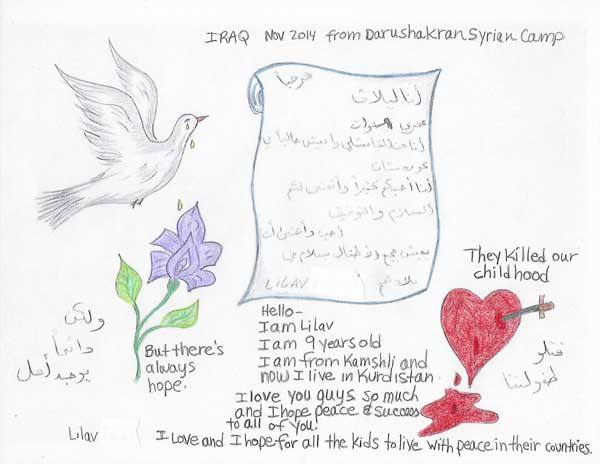 IRAQ Nov 2014 from Darushakran Syrian Camp
مرحبا
أنا ليلاف
عمري ٩ سنوات
أنا من القامشلي وأعيش حاليا في
كردستان
أنا أحبكم كثيراً وأتمنى لكم
السلام والتوفيق
أحب وأتمنى أن
يعيش جميع الأطفال بسلام في
بلادهم
LILAV
They Killed our
childhood
قتلو
طفولتنا
ولكن
دائماً
يوجد أمل
But there's
always
hope.
Hello-
I am Lilav
I am 9 years old
I am from Kamshli and
now I live in Kurdistan.
I love you guys so much
and I hope peace & success
to all of you!
Lilav
I Love and I hope for all the kids to live with peace in their countries.